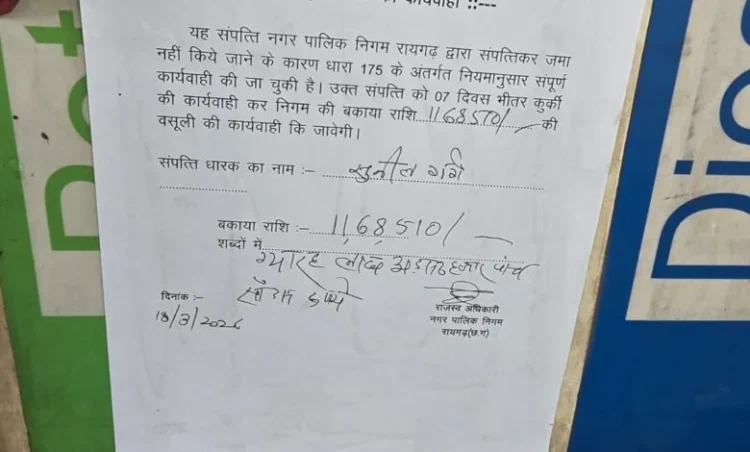 कार्यवाही ::---
यह संपत्ति नगर पालिक निगम रायगढ़ द्वारा संपत्तिकर जमा
नहीं किये जाने के कारण धारा 175 के अंतर्गत नियमानुसार संपूर्ण
कार्यवाही की जा चुकी है। उक्त संपत्ति को 07 दिवस भीतर कुर्की
की कार्यवाही कर निगम की बकाया राशि...1168510/- की
वसूली की कार्यवाही कि जावेगी।
संपत्ति धारक का नाम :- सुनील गर्ग
बकाया राशि :- 11,68,510/-
शब्दों में ग्यारह लाख अड़सठ हजार पांच
दिनांक :-
18/3/2026
राजस्व अधिकारी
नगर पालिक निगम
रायगढ़(छ.ग)